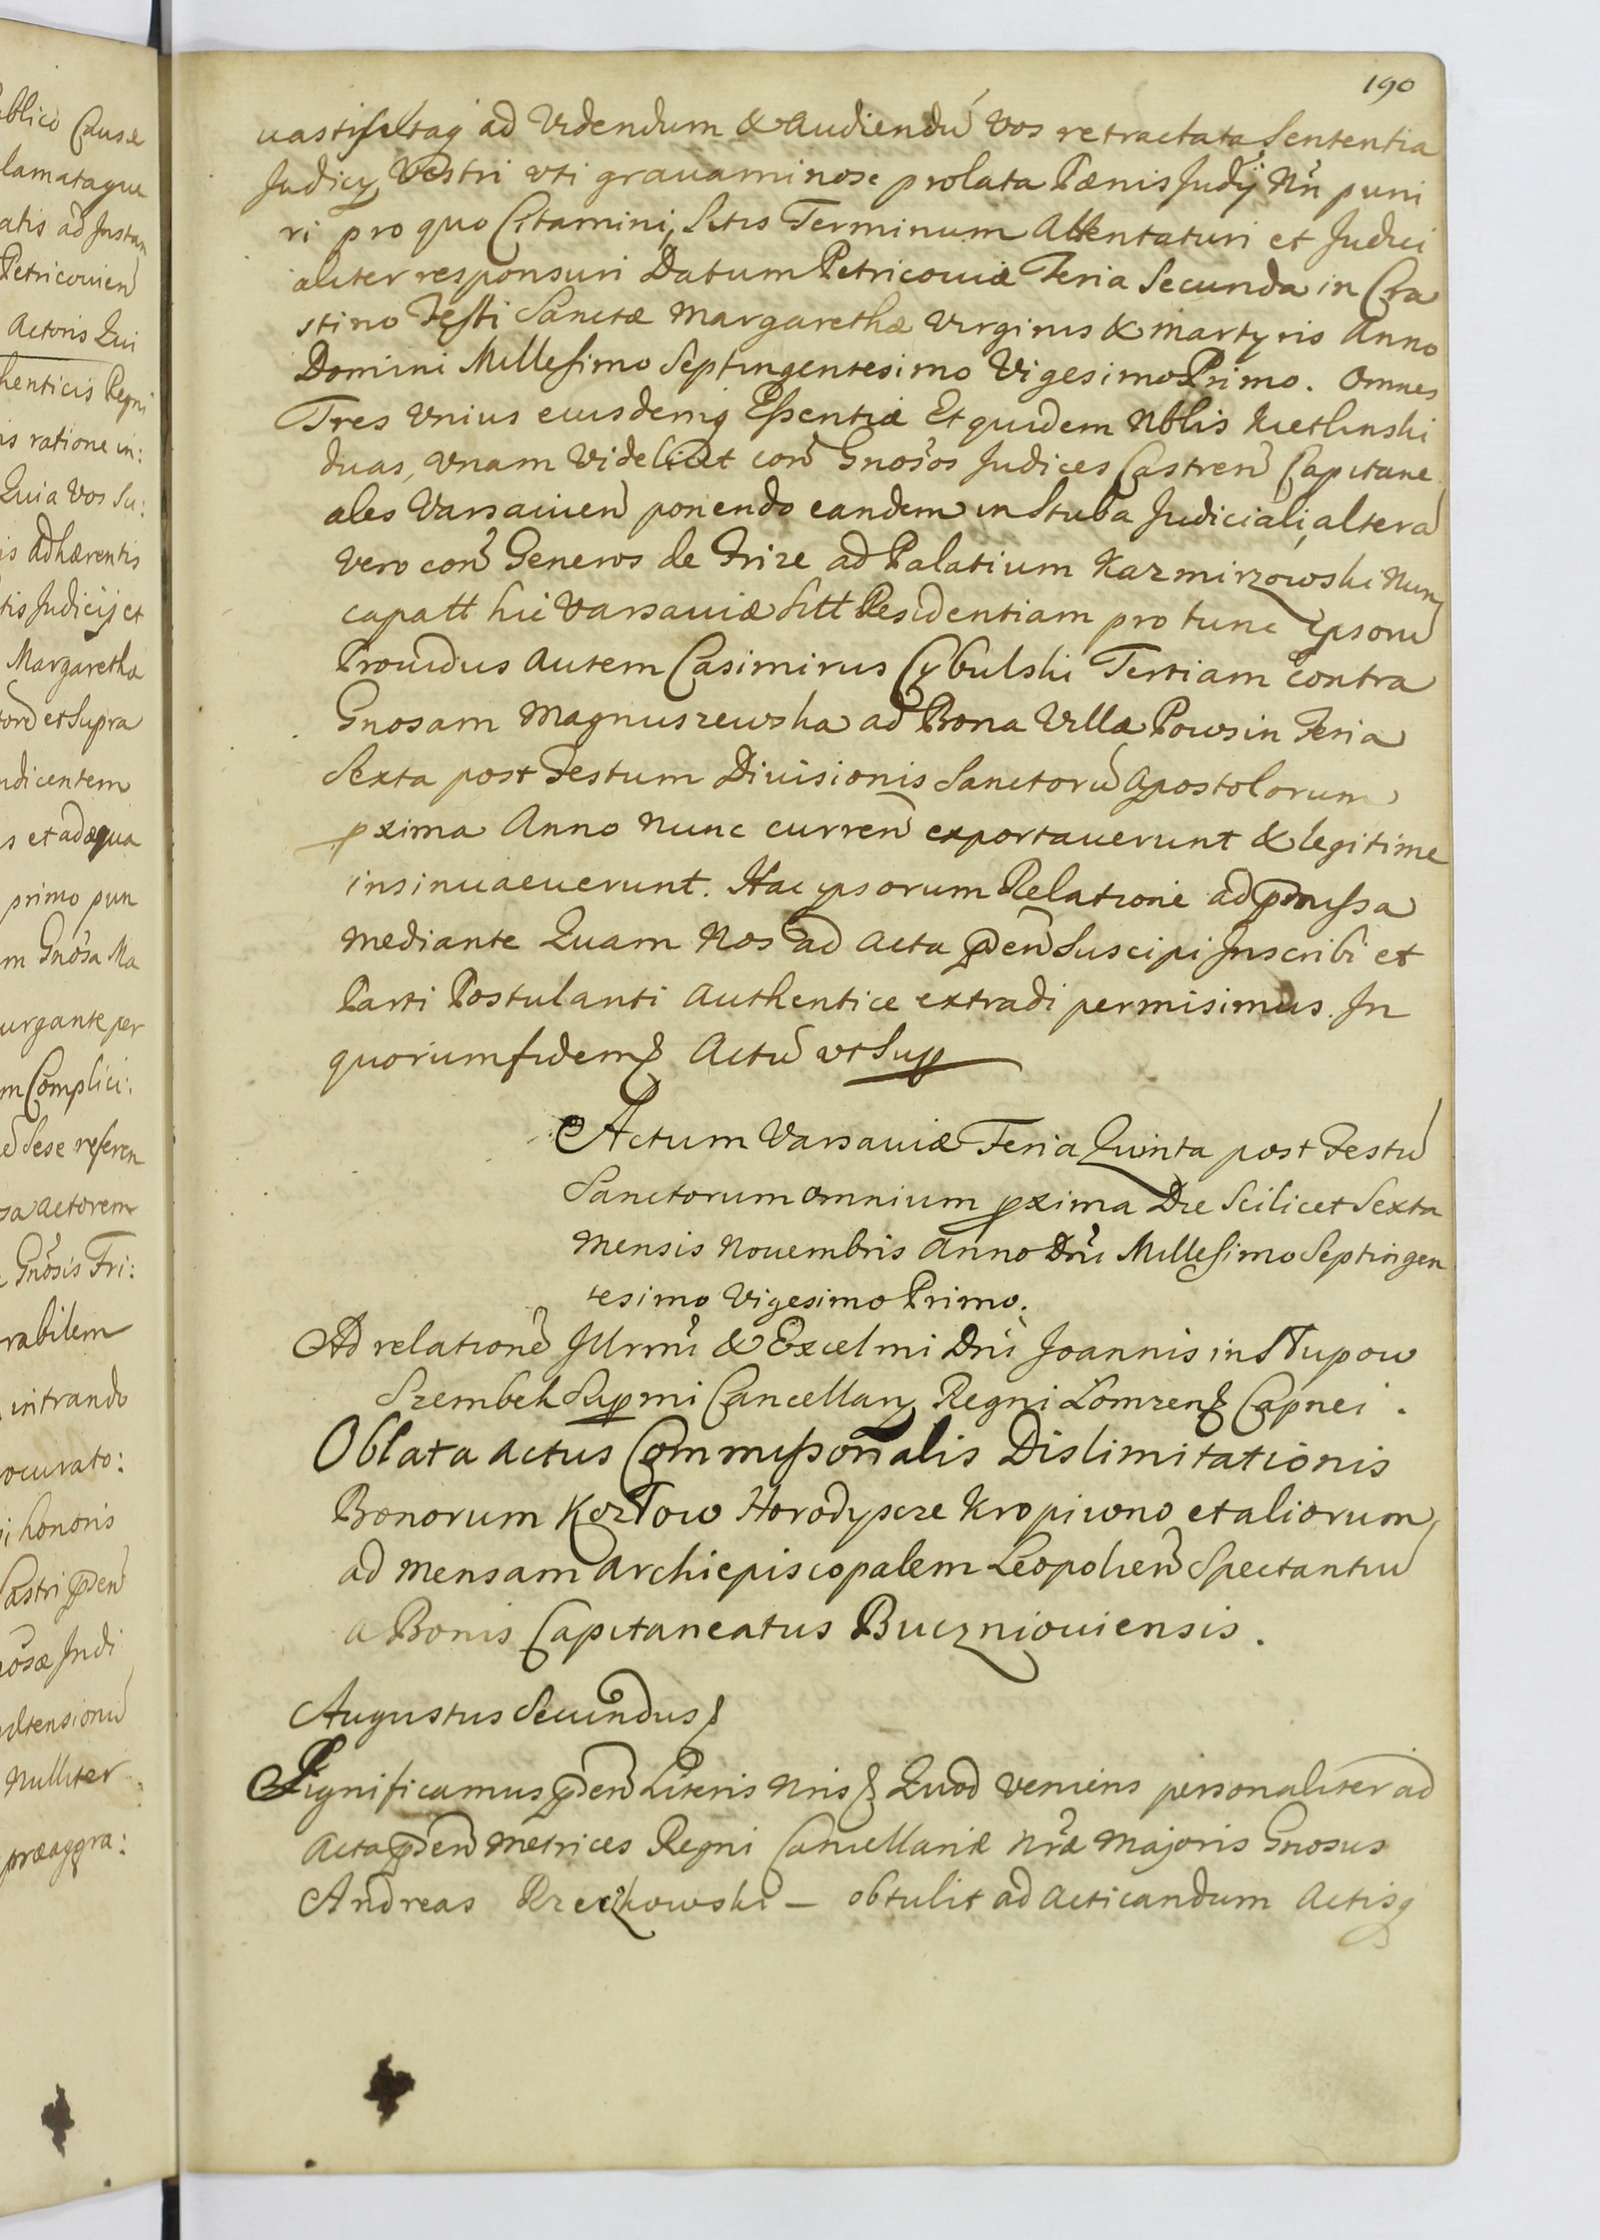 190
ublico Causæ
lamataque
atis ad Instan
Petricovien
Actoris Qui
henticis Regni
is ratione in:
Quia Vos Su:
is adhærentis
tis Judicij et
Margaretha
et Supra
ndicentem
s et adæqua
primo pun
m Gnosa Ma
urgante per
m Complici:
Sese referen
actorem
Gnosis Fri:
rabilem
intrando
ocurato:
i honoris
Castri pñen
osæ Judi
Nulliter
præaggra:
ad Videndum & Audiendũ Vos retractata Sententia
Judicij Vestri uti grauaminose prolata Pænis Judÿ Nri puni
ri pro quo Citamini, Sitis Terminum Attentaturi et Judici
aliter responsuri Datum Petricouiæ Feria Secunda in Cra
stino Festi Sanctæ Margarethæ Virginis & Martyris Anno
Domini Millesimo Septingentesimo Vigesimo Primo. Omnes
Tres Unius eiusdemq Essentiæ Et quidem Nblis Kietlinski
duas, Unam Videlicet con Gnosos Judices Castren Capitane
ales Varsavien ponendo eandem in Stuba Judiciali, alterã
vero con Generos de Frize ad Palatium Kazmirzowski Nun
capatt hic Varsauiæ Sitt Residentiam pro tunc Ipsorũ
Prouidus Autem Casimirus Cybulski Tertiam contra
Gnosam Magnuszewska ad Bona Villa Powsin Feria
Sexta post Festum Divisionis Sanctorũ Apostolorum
pxima Anno Nunc curren exportauerunt & legitime
insinuaeuerunt. Hac ipsorum Relatione ad pmissa
Mediante Quam Nos ad Acta pñen Suscipi Inscribi et
Parti Postulanti Authentice extradi permisimus. In
quorum fidem Actũ ut Sup
Actum Varsauiæ Feria Quinta post Festũ
Sanctorum omnium pxima Die Scilicet Sexta
Mensis Nouembris Anno Dni Millesimo Septingen
tesimo Vigesimo Primo.
Ad relationẽ Illrmi & Excelmi Dni Joannis in Słupow
Szembek Supmi Cancellarij Regni Lomzen Capnei.
Oblata Actus Commissorialis Dislimitationis
Bonorum Kozłow Horodyszcze Kropiwno et aliorum
ad Mensam Archiepiscopalem Leopolien Spectantiũ
a Bonis Capitaneatus Buczniouiensis.
Augustus Secundus
Significamus pñen Literis Nris Quod Veniens personaliter ad
Acta pñen Metrices Regni Cancellariæ Nræ Majoris Gnosus
Andreas — obtulit ad acticandum Actisq